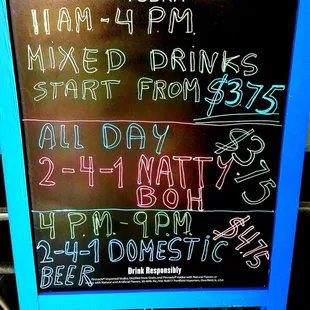 11AM-4 P.M.
MIXED DRINKS
START FROM $3.75
ALL DAY $3.75
2-4-1 NATTY
BOH
4 P.M.-9P.M. $4.75
2-4-1 DOMESTIC
BEER
Drink Responsibly